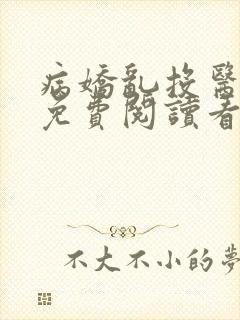 病嬌亂投醫
免費閱讀看
不大不小的夢